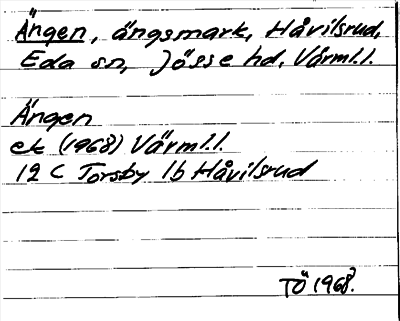 Ängen, ängsmark, Håvilsrud,
Eda sn, Jösse hd, Värml.l.
Ängen
ek (1968) Värml.l.
12 C Torsby 1b Håvilsrud
TÖ 1968.